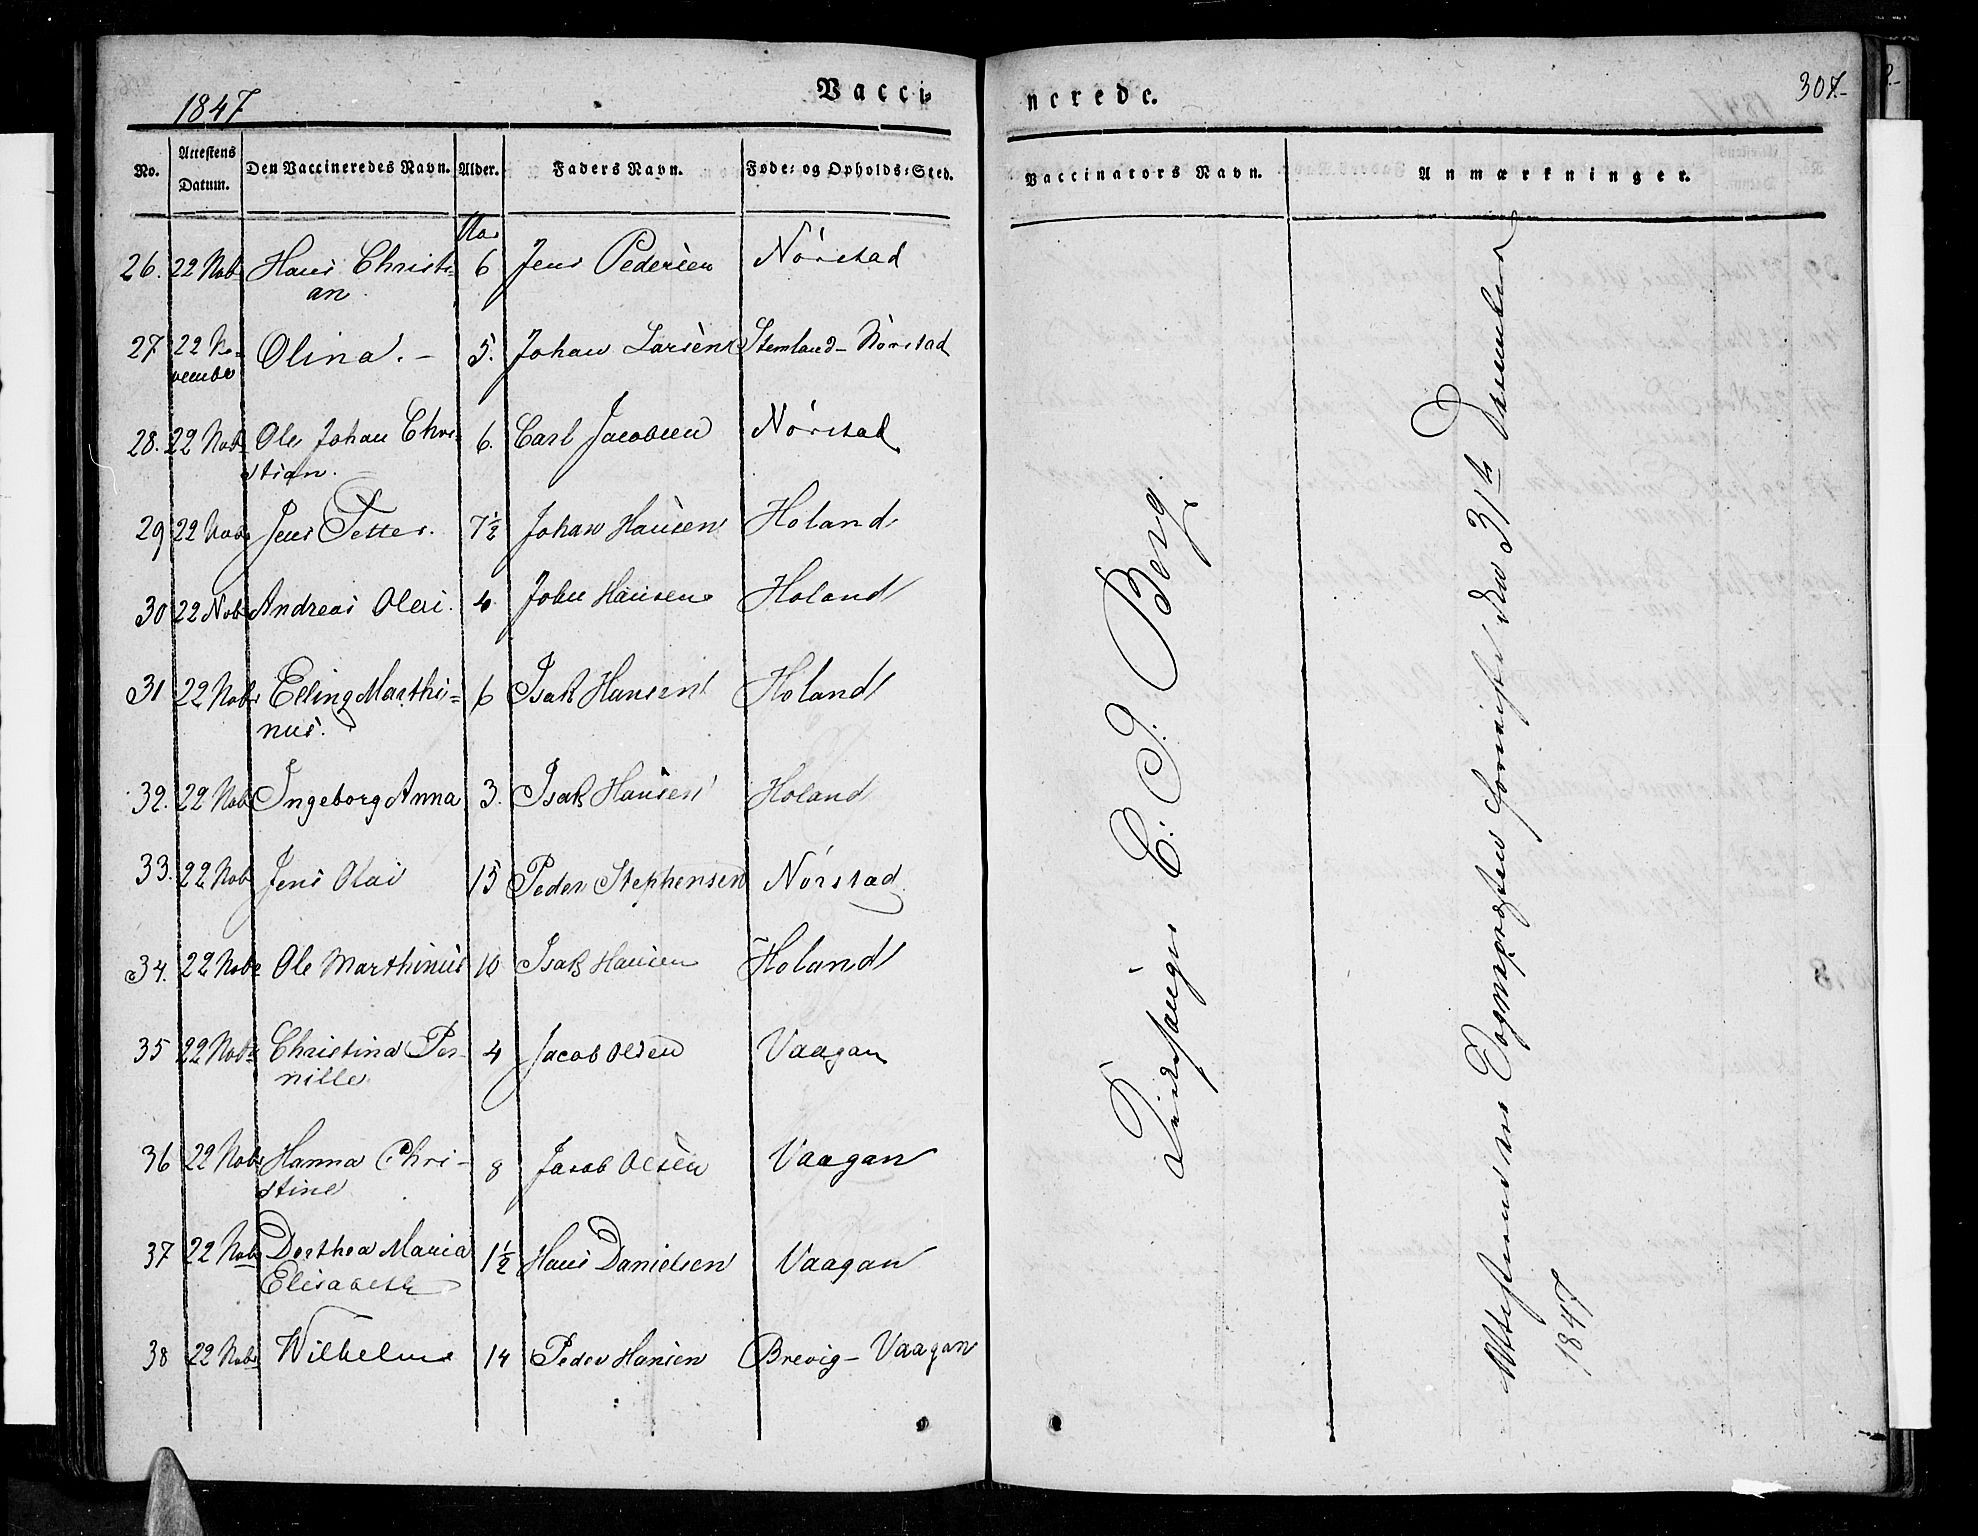 1847 Vacci-
nerede. 307.-
No. Attestens Datum. Den Vaccineredes Navn. Alder. Faders Navn. Føde- og Opholds-Sted.
Vaccinators Navn. Anmærkninger.
26. 22 Nobr Hans Christi- 6 Jens Pedersen Nórstad
an.
27 22 No- Olina. - 5. Johan Larsen Stemland- Nórstad
vember
28. 22 Nobr Ole Johan Chri- 6. Carl Jacobsen Nórstad
stian.
29 22 Nobr Jens Petter. 7½ Johan Hansen Holand
30 22 Nobr Andreas Olai. 4. John Hansen Holand
31 22 Nobr Elling Marthi- 6 Isak Hansen Holand
nus.
32. 22 Nob Ingeborg Anna 3. Isak Hansen Holand
33. 22 Nob Jens Olai 15 Peder Stephensen Nórstad
34. 22 Nobr Ole Marthinus 10 Isak Hansen Holand
35 22 Nobr Christina Per- 4 Jacob Olsen Vaagan
nille
36 22 Nobr Hanna Chri- 8 Jacob Olsen Vaagan
stine
37 22 Nobr Dorthea Maria 1½ Hans Danielsen Vaagan
Elisabeth
38 22 Nobr Wilhelm 14 Peder Hansen Brevig- Vaagan
E. I. Berg.
Attesterne ere Sognepræsten forevist den 31te December
1847